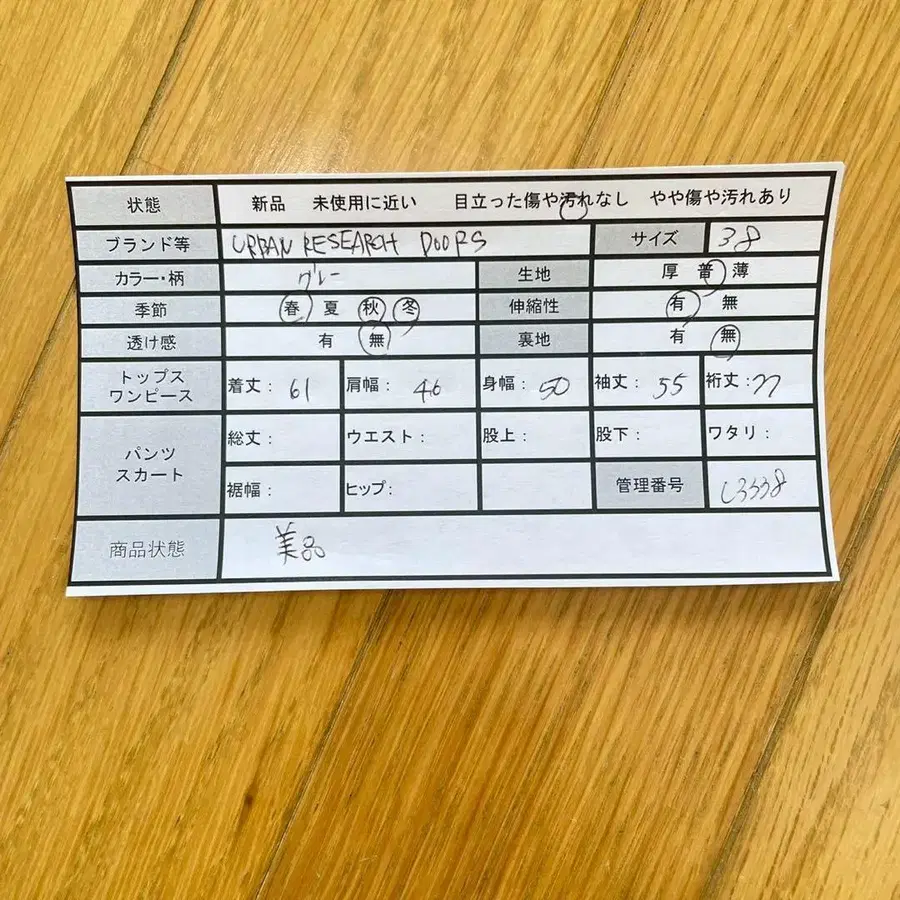 状態 新品 未使用に近い 目立った傷や汚れなし やや傷や汚れあり
ブランド等 URBAN RESEARCH DOORS サイズ 38
カラー・柄 グレー 生地 厚 普 薄
季節 春 夏 秋 冬 伸縮性 有 無
透け感 有 無 裏地 有 無
トップス
ワンピース
着丈: 61 肩幅: 46 身幅: 50 袖丈: 55 裄丈: 77
パンツ
スカート
総丈: ウエスト: 股上: 股下: ワタリ:
裾幅: ヒップ: 管理番号
商品状態 美品